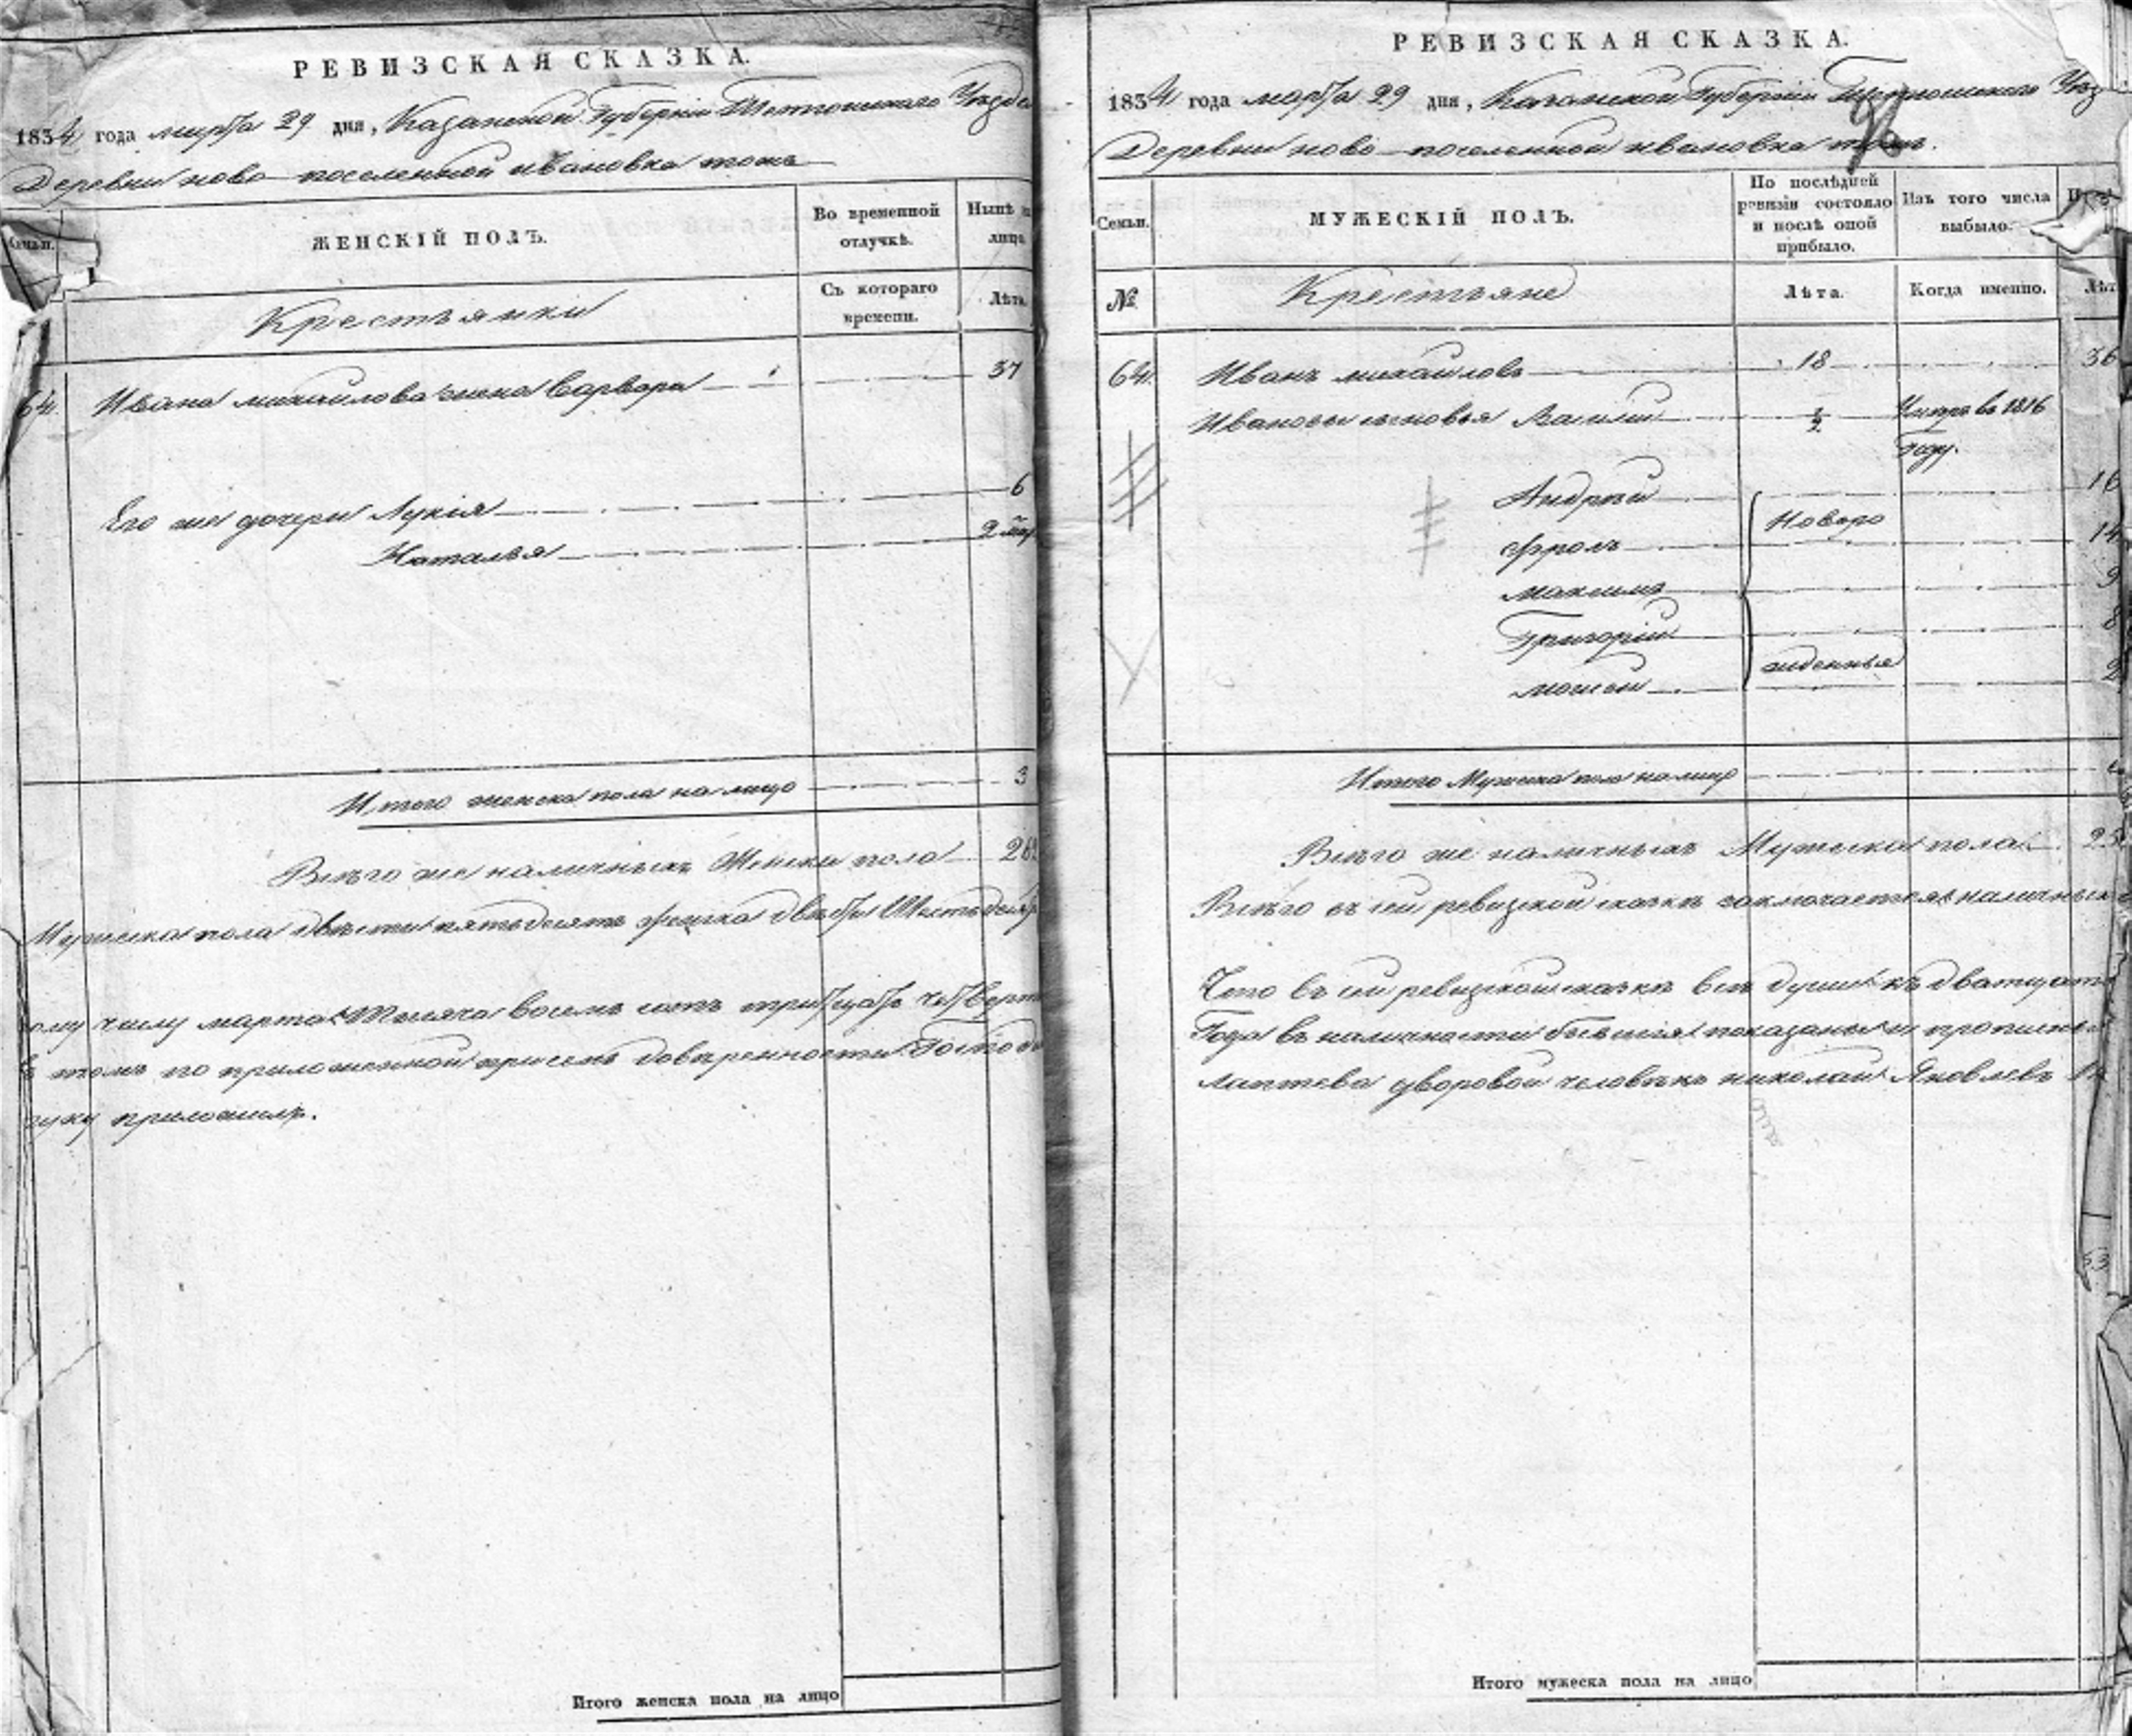 РЕВИЗСКАЯ СКАЗКА.
1834 года марта 29 дня, Казанской Губерніи Тетюшскаго Уезда
Деревни ново-поселенной ивановка тожъ
Семьи.
ЖЕНСКІЙ ПОЛЪ.
Во временной отлучкѣ.
Нынѣ на лицо
Крестьянки
Съ котораго времени.
Лѣта.
64. Ивана михайлова жена варвара 37
Его же дочери Лукія 6
Наталья 2
Итого женска пола на лицо 3
Всѣго же наличныхъ Женска пола 26
Мужеска пола двѣсти пятьдесятъ женска двѣсти Шестьдесят
ому числу марта Тысяча восемь сотъ тритцать четверт
в томъ по приложенной присемъ довѣренности Господи
руку приложилъ.
Итого женска пола на лицо
РЕВИЗСКАЯ СКАЗКА.
1834 года марта 29 дня, Казанской Губерніи Тетюшскаго Уез
96
Деревни ново-поселенной ивановка тожъ.
Семьи.
МУЖЕСКІЙ ПОЛЪ.
По послѣдней ревизіи состояло и послѣ оной прибыло.
Изъ того числа выбыло.
№
Крестьяне
Лѣта.
Когда именно.
Лѣт
64. Иванъ михайловъ 18 36
Ивановы сыновья Василий 1/2 Умеръ в 1816
Году.
Андрѣй 16
Фролъ Новоро 14
Максимъ 9
Григорій 8
Мосей жденныя 2
Итого Мужеска пола налицо
Всѣго же наличныхъ Мужеска пола 25
Всѣго въ сей ревизской сказкѣ заключается наличныхъ
Что въ сей ревизской сказкѣ всѣ души къ дватцать
Года в наличности бывшія показаны и прописны
лаптева дворовой человѣкъ николай Яковлевъ
53
Итого мужеска пола на лицо